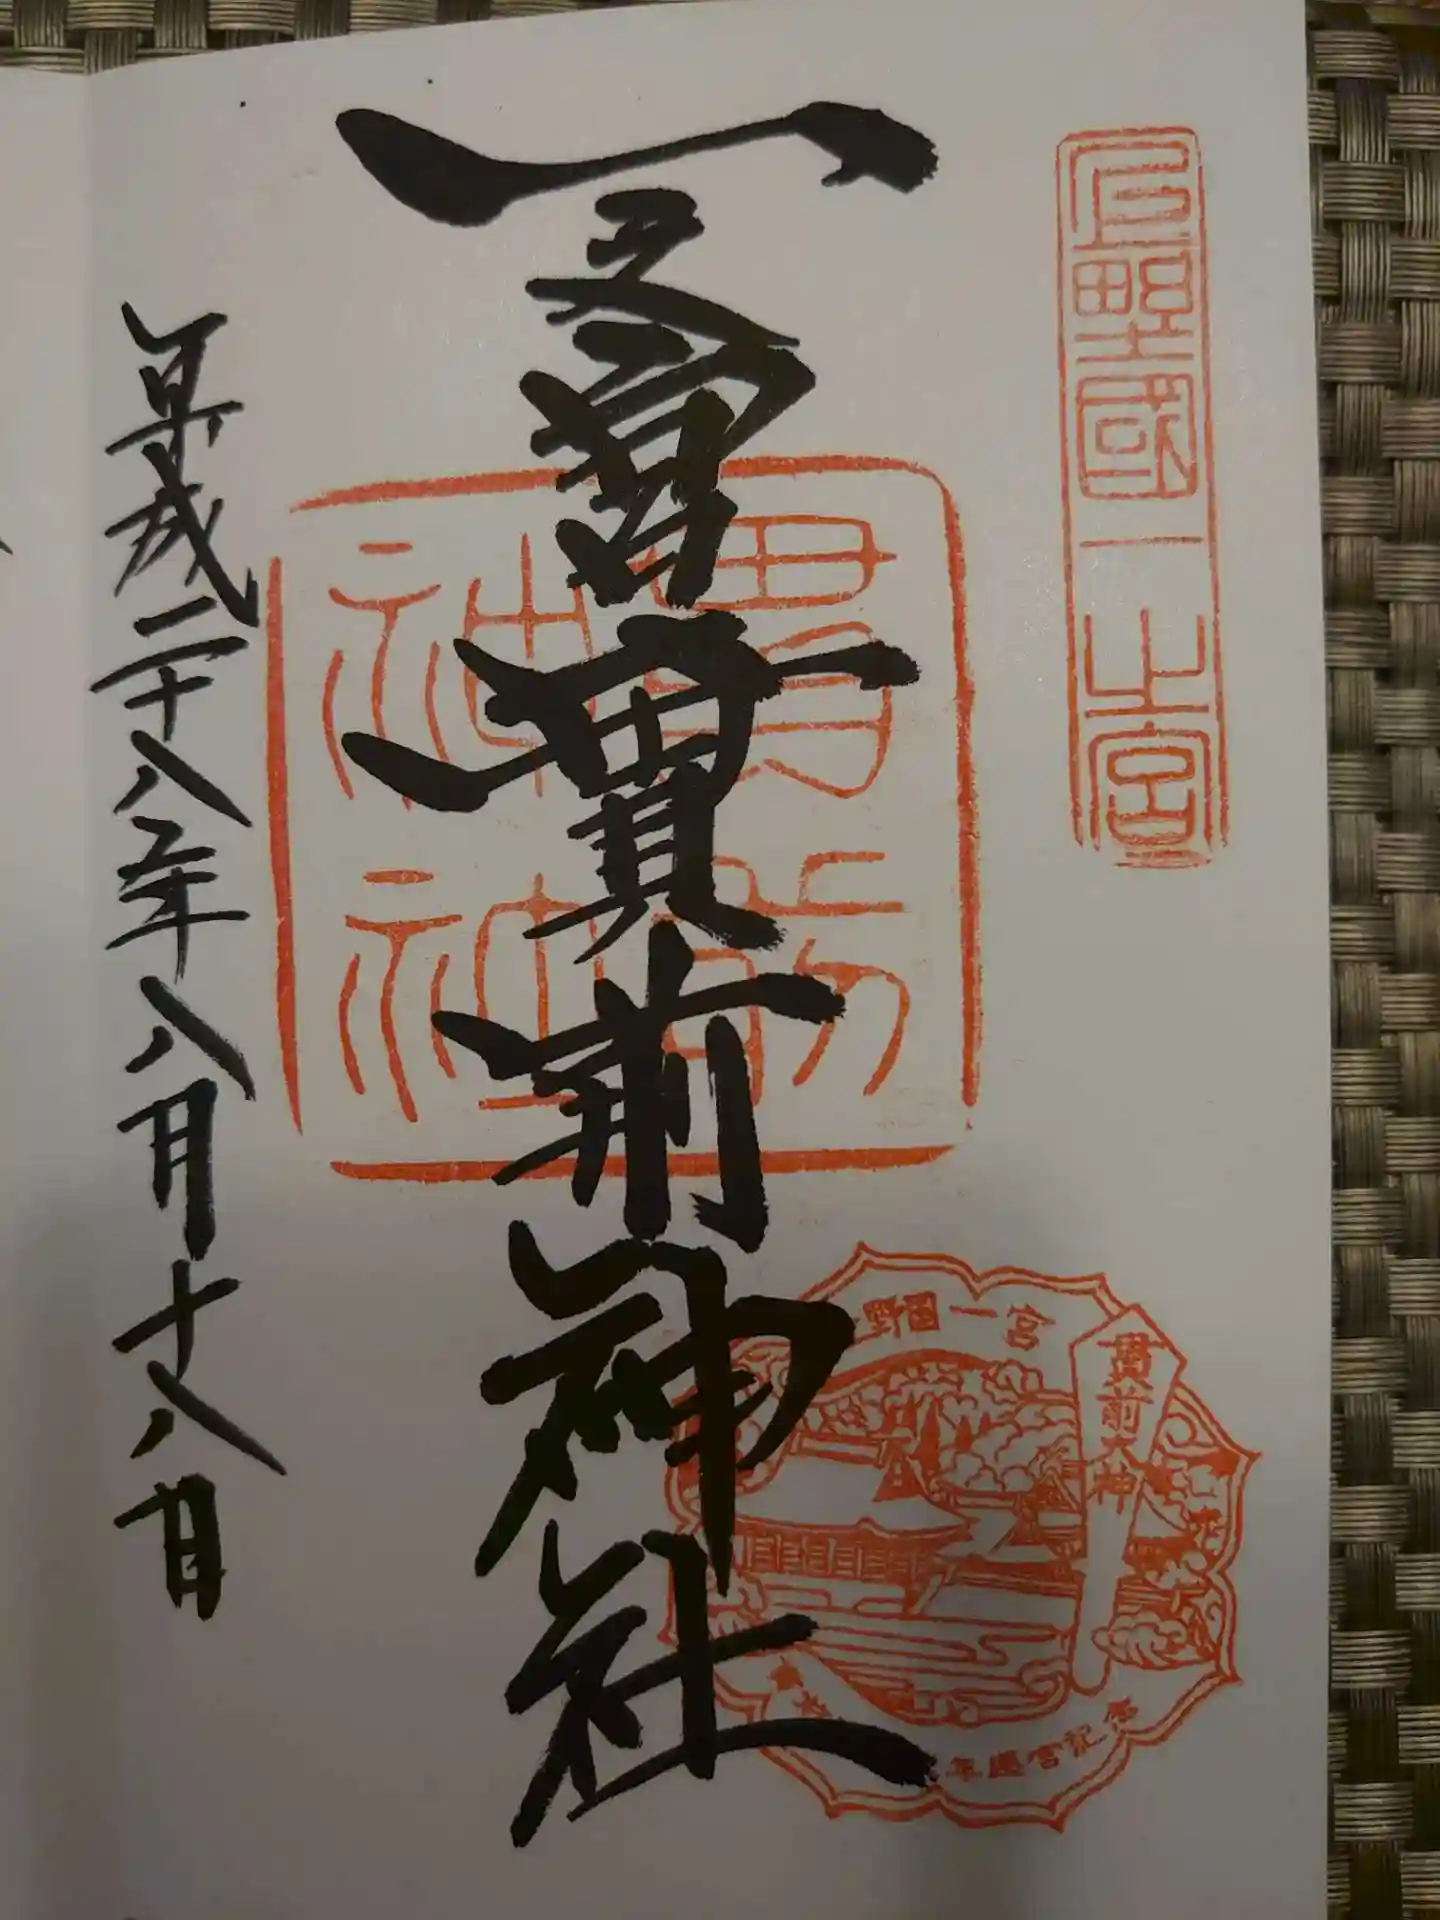 上野國一之宮
一之宮貫前神社
貫前神社
平成二十八年八月十八日
野国一宮
貫前大神
年遷宮記念